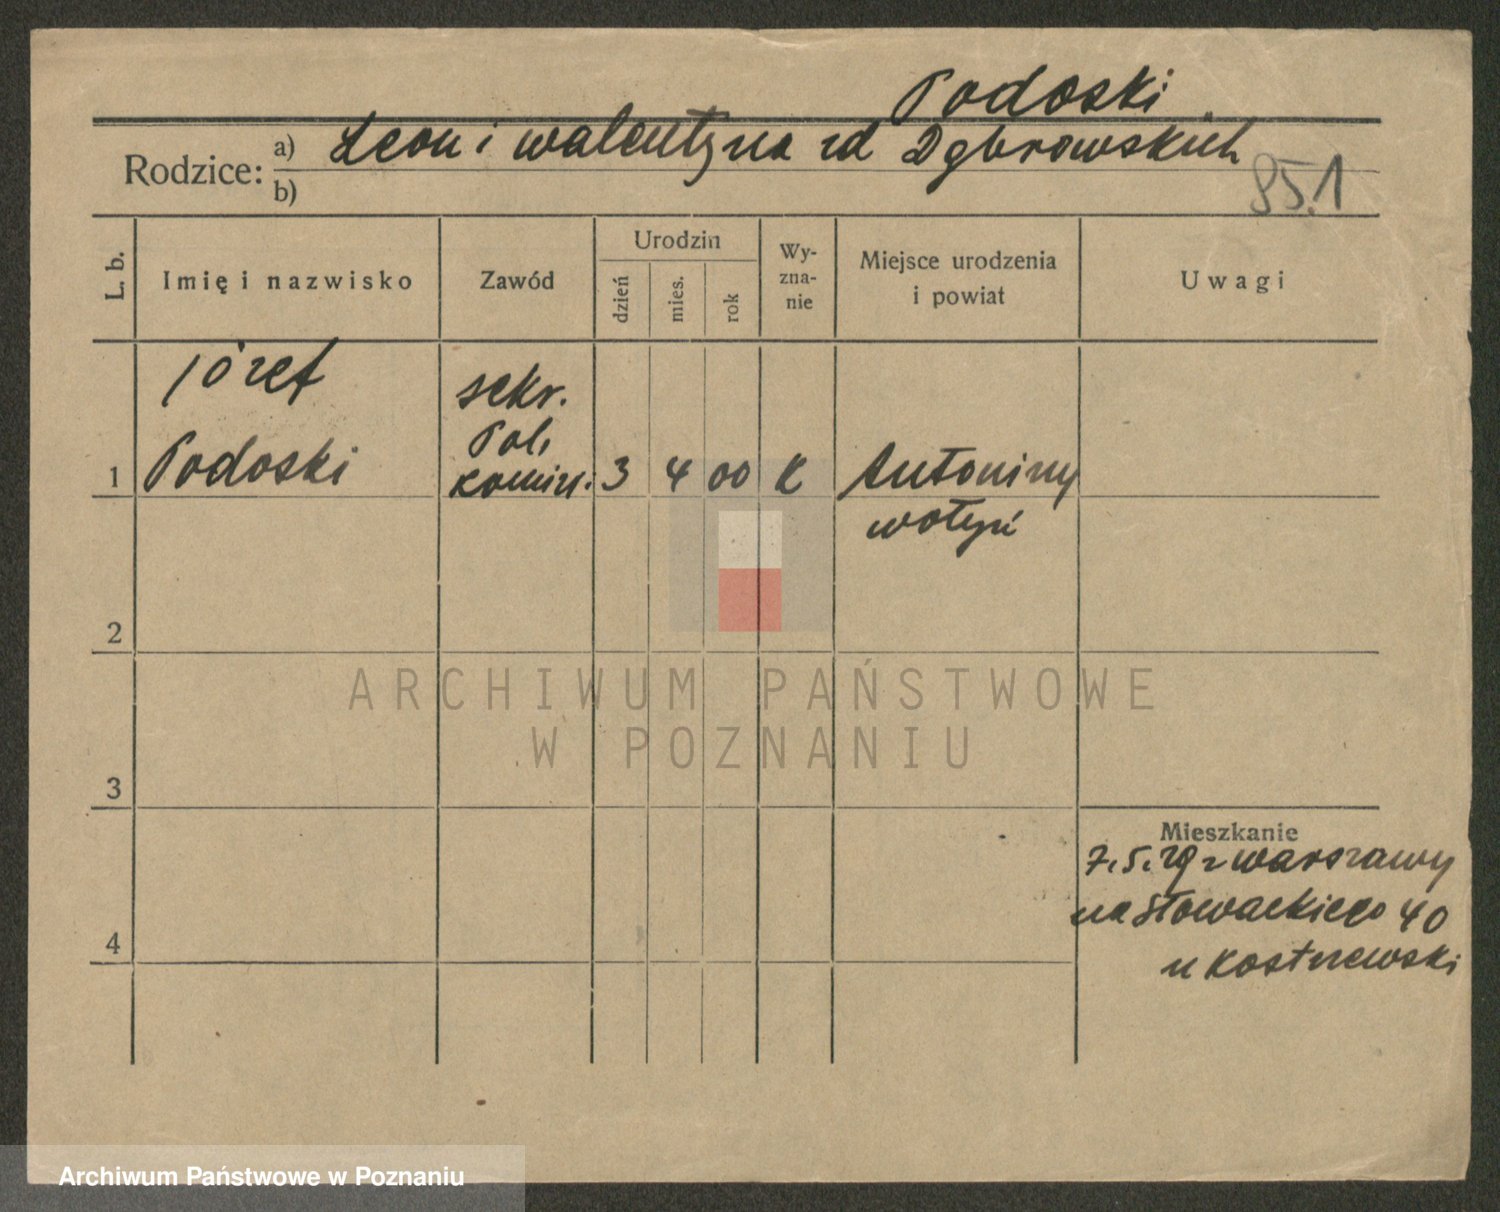 Podoski
Rodzice: a) Leon i Walentyna zd Dąbrowskich
b)
85.1
L. b.
Imię i nazwisko
Zawód
Urodzin
dzień
mies.
rok
Wy-
zna-
nie
Miejsce urodzenia
i powiat
Uwagi
Józef
sekr.
Pol.
1 Podoski komis. 3 4 00 K Antoniny
wołyń
2
ARCHIWUM PAŃSTWOWE
W POZNANIU
3
Mieszkanie
7.5.29 z Warszawy
na Słowackiego 40
4
u Kostrzewski
Archiwum Państwowe w Poznaniu